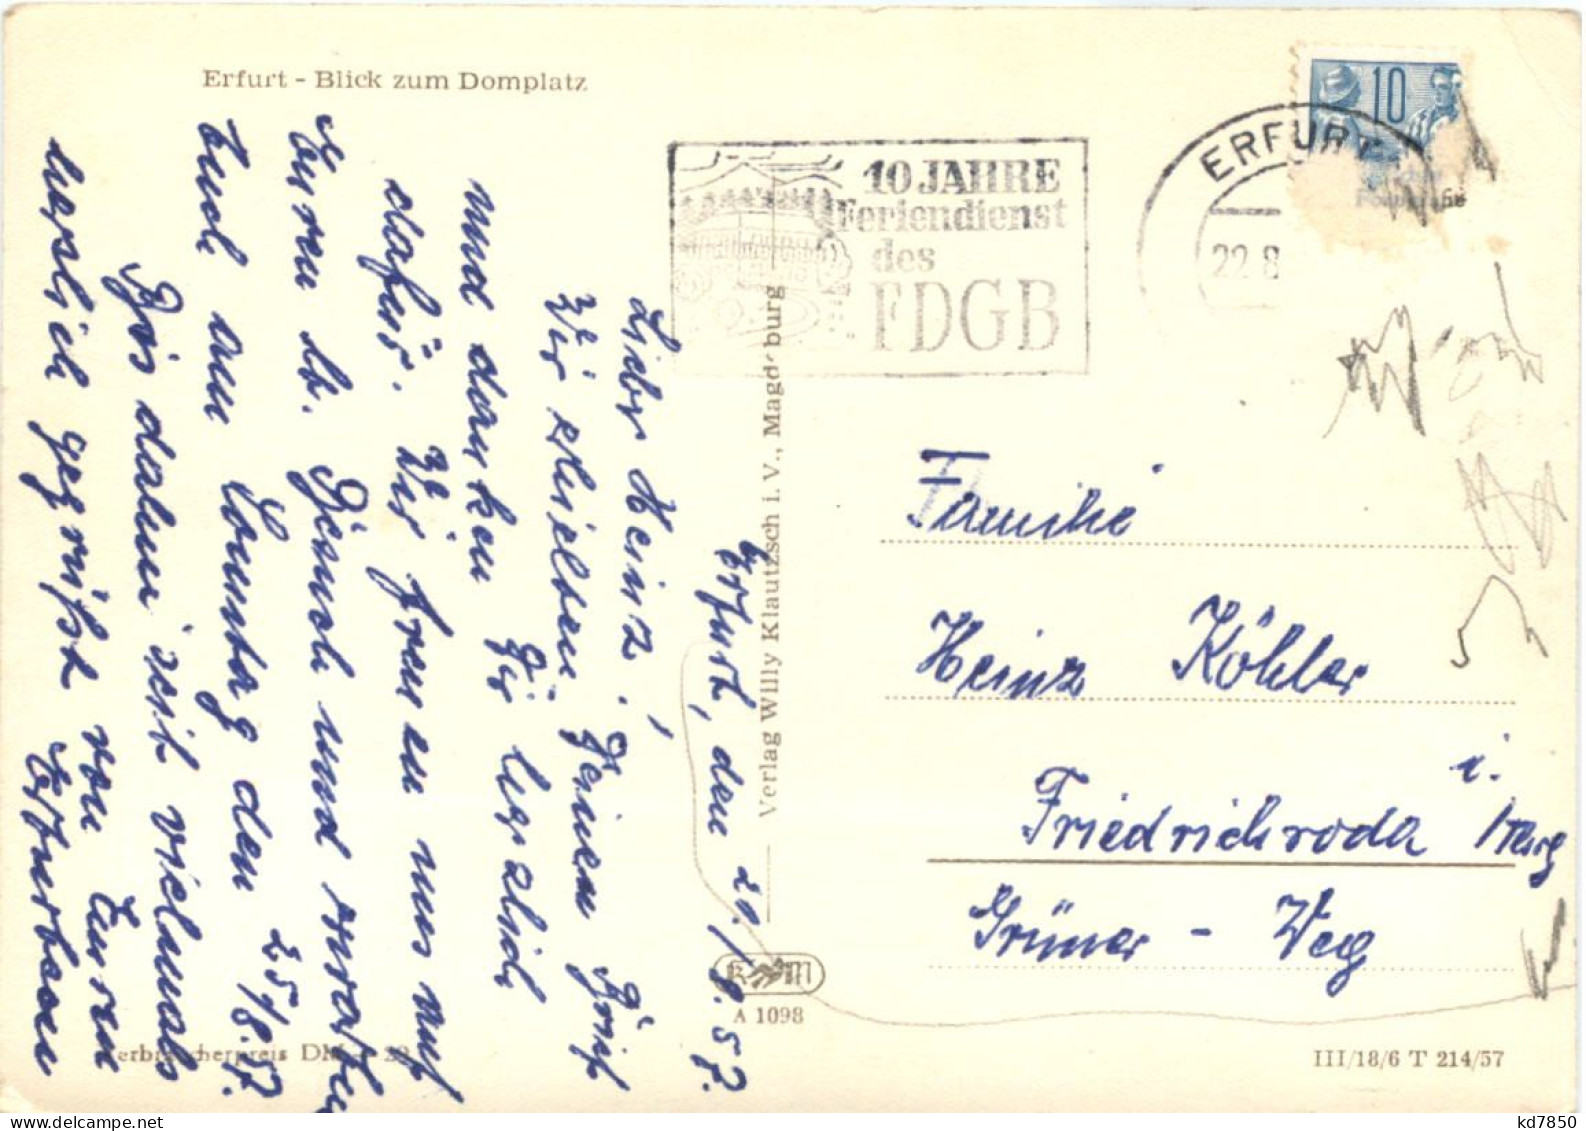 Erfurt - Blick zum Domplatz
10 JAHRE
Feriendienst
des
FDGB
ERFURT
22.8
10
Erfurt, den 21./8.57.
Lieber Heinz!
Wir erhielten Deinen Brief
und danken Dir herzlich
dafür. Wir freuen uns auf
Euren lb. Besuch und erwarten
Euch am Sonntag den 25./8.57.
Bis dahin seit vielmals
herzlich gegrüßt von Euren
Erfurtern
Verlag Willy Klautzsch i. V., Magdeburg
K M
A 1098
Familie
Heinz Köhler
Friedrichroda i. Thürg
Grüner - Weg
Verbraucherpreis DM
III/18/6 T 214/57
kd7850